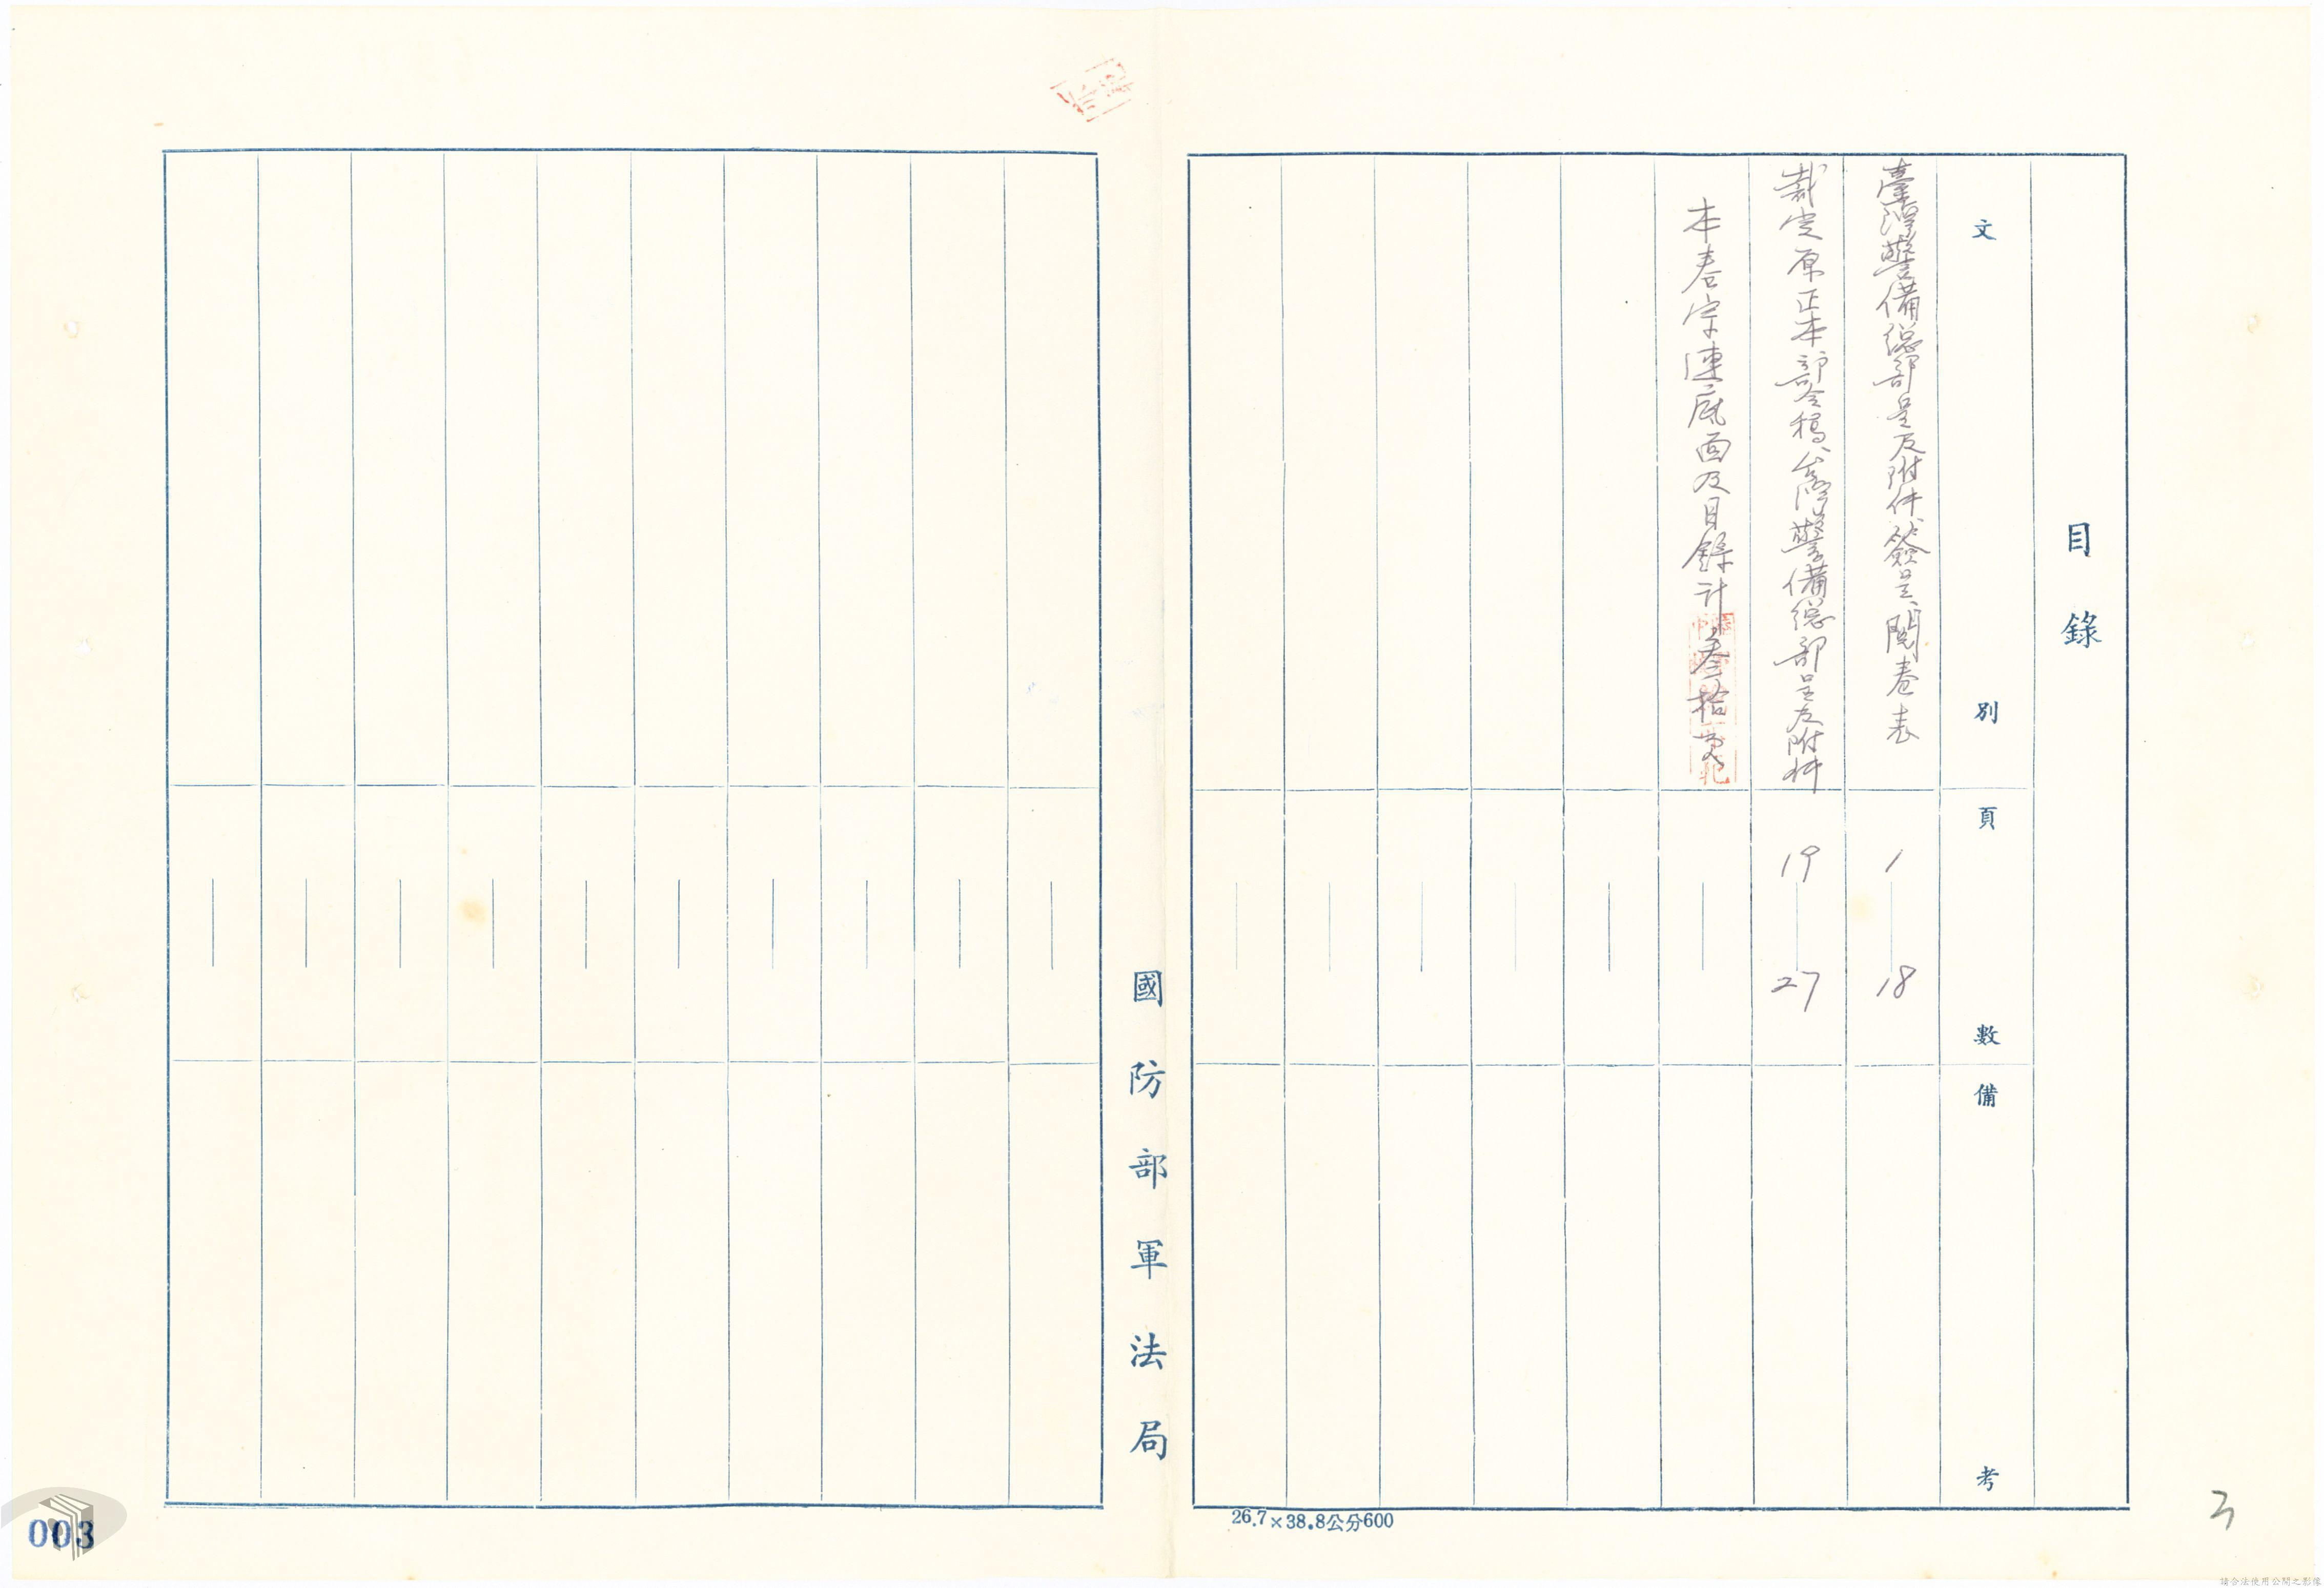 目錄
文別
頁數
備考
臺灣警備總部呈及附件、簽呈、閱卷表
1
18
裁定原正本、部令稿、台灣警備總部呈及附件
19
27
本卷宗連底面及目錄計叁拾頁
國防部軍法局
26.7×38.8公分600
003
請合法使用公開之影像